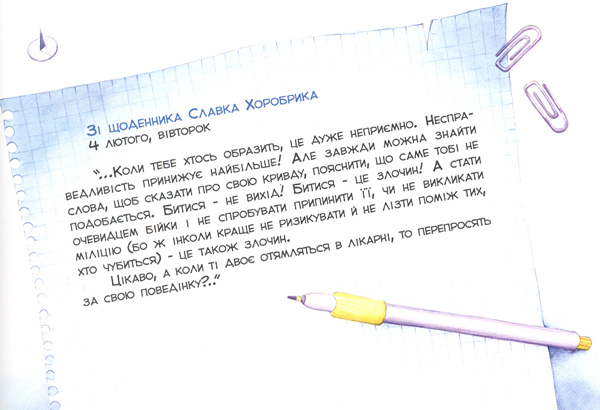 Зі щоденника Славка Хоробрика
4 лютого, вівторок
"...Коли тебе хтось образить, це дуже неприємно. Неспра-
ведливість принижує найбільше! Але завжди можна знайти
слова, щоб сказати про свою кривду, пояснити, що саме тобі не
подобається. Битися - не вихід! Битися - це злочин! А стати
очевидцем бійки і не спробувати припинити її, чи не викликати
міліцію (бо ж інколи краще не ризикувати й не лізти поміж тих,
хто чубиться) - це також злочин.
Цікаво, а коли ті двоє отямляться в лікарні, то перепросять
за свою поведінку?.."